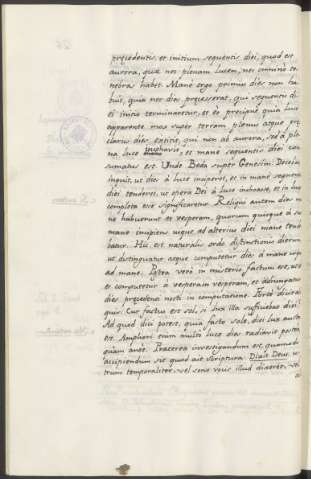 præcedentis, et initium sequentis diei, quod est
aurora, quæ nec plenam lucem, nec omninò te
nebras habet. Mane ergo primus dies non ha
buit, quia nec dies præcesserat, qui sequentis di
ei initio terminaretur, et eo præcipuè quia luce
apparente mox super terram plenus atque præ
clarus dies extitit, qui non ab aurora, sed à ple
na luce inchoavit, et mane sequentis diei con
sumatus est. Unde Beda super Genesim: Decebat
inquit, ut dies à luce inciperet, et in mane sequentis
diei tenderet, ut opera Dei à luce inchoasse, et in luce
completa esse significaretur. Reliqui autem dies ma
ne habuerunt et vesperam, quorum quisque à suo
mane incipiens usque ad alterius diei mane tende
batur. Hic est naturalis ordo distinctionis dierum
ut distinguatur atque computetur dies à mane usque
ad mane. Postea verò in misterio factum est, ut di
es computetur à vespera in vesperam, et adiungatur
dies præcedenti nocti in computatione. Forte dicet ali
quis: Cur factus est sol, si lux illa sufficiebat diei?
Ad quod dici potest, quia facto sole, diei lux aucta
est. Ampliori enim multò luce dies radiavit postea,
quàm antè. Præterea investigandum est, quomodo
accipiendum sit quod ait scriptura Dixit Deus, u
trum temporaliter, vel sono vocis illud dixerit, vel